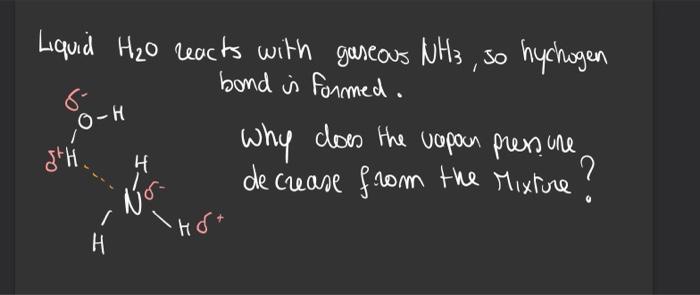 Liquid H2O reacts with gaseous NH3, so hydrogen
bond is formed.
δ-
O-H
δ+H
H
N δ-
H δ+
H
Why does the vapour pressure
decrease from the Mixture?